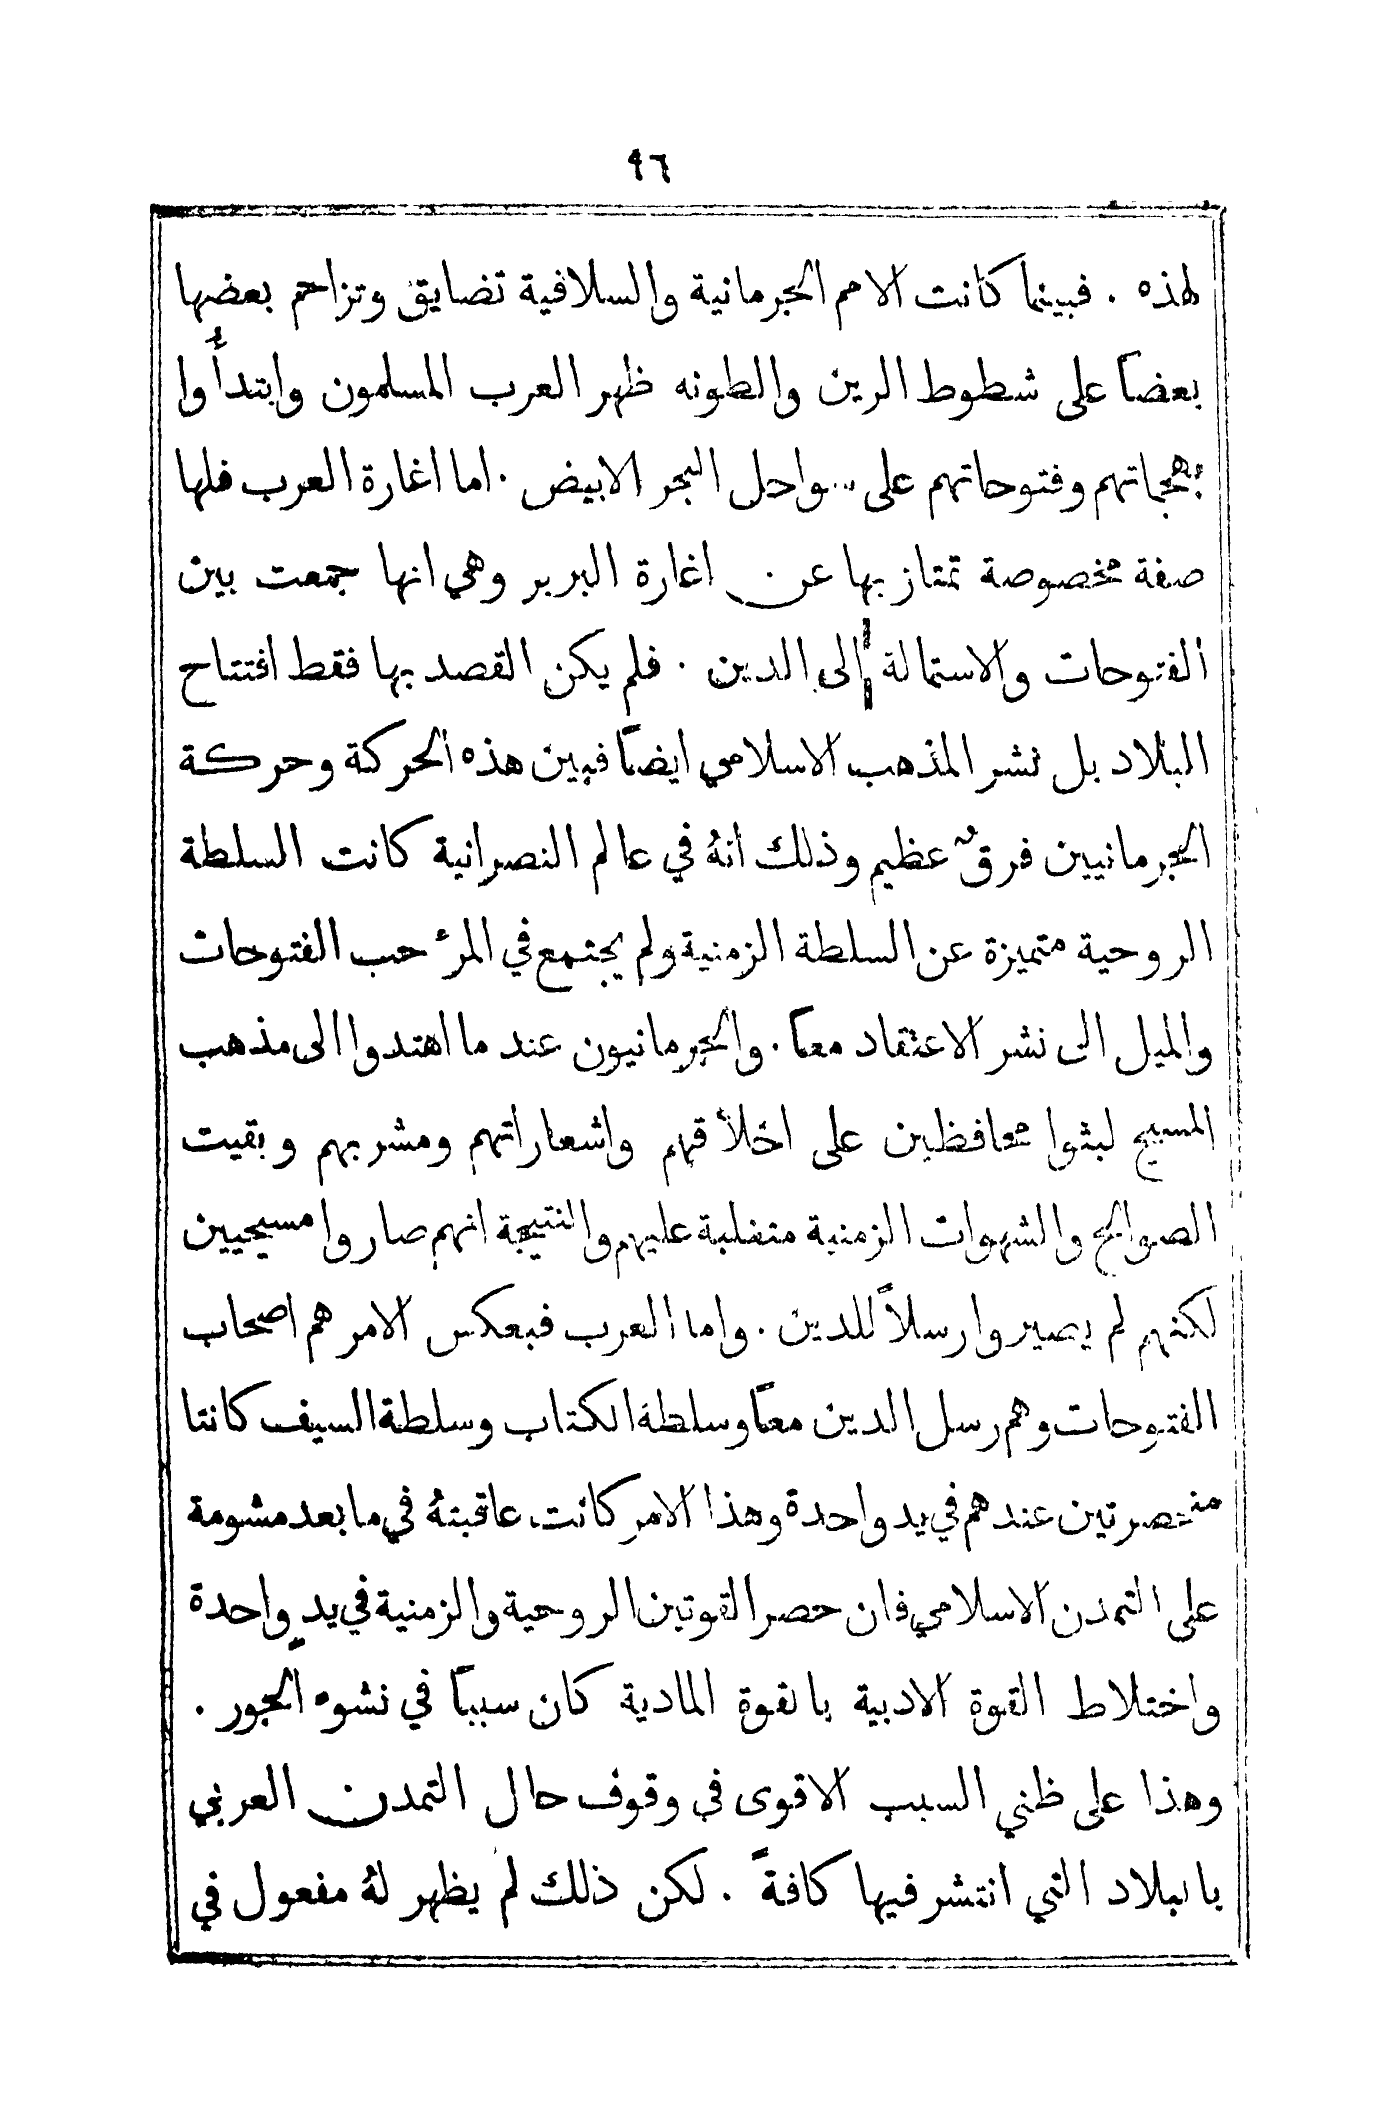 ٩٦
لهذه . فبينما كانت الامم الجرمانية والسلافية تضايق وتزاحم بعضها
بعضاً على شطوط الرين والطونه ظهر العرب المسلمون وابتدأُوا
بهجماتهم وفتوحاتهم على سواحل البحر الابيض . اما اغارة العرب فلها
صفة مخصوصة تمتاز بها عن اغارة البربر وهي انها جمعت بين
الفتوحات والاستمالة الى الدين . فلم يكن القصد بها فقط افتتاح
البلاد بل نشر المذهب الاسلامي ايضاً فبين هذه الحركة وحركة
الجرمانيين فرقٌ عظيم وذلك انهُ في عالم النصرانية كانت السلطة
الروحية متميزة عن السلطة الزمنية ولم يجتمع في المرء حب الفتوحات
والميل الى نشر الاعتقاد معاً . والجرمانيون عند ما اهتدوا الى مذهب
المسيح لبثوا محافظين على اخلاقهم واشعاراتهم ومشربهم وبقيت
الصوالح والشهوات الزمنية متغلبة عليهم والنتيجة انهم صاروا مسيحيين
لكنهم لم يصيروا رسلاً للدين . واما العرب فبعكس الامر هم اصحاب
الفتوحات وهم رسل الدين معاً وسلطة الكتاب وسلطة السيف كانتا
منحصرتين عندهم في يد واحدة وهذا الامر كانت عاقبتهُ في ما بعد مشومة
على التمدن الاسلامي فان حصر القوتين الروحية والزمنية في يدٍ واحدة
واختلاط القوة الادبية بالقوة المادية كان سبباً في نشوء الجور .
وهذا على ظني السبب الاقوى في وقوف حال التمدن العربي
بالبلاد التي انتشر فيها كافةً . لكن ذلك لم يظهر لهُ مفعول في